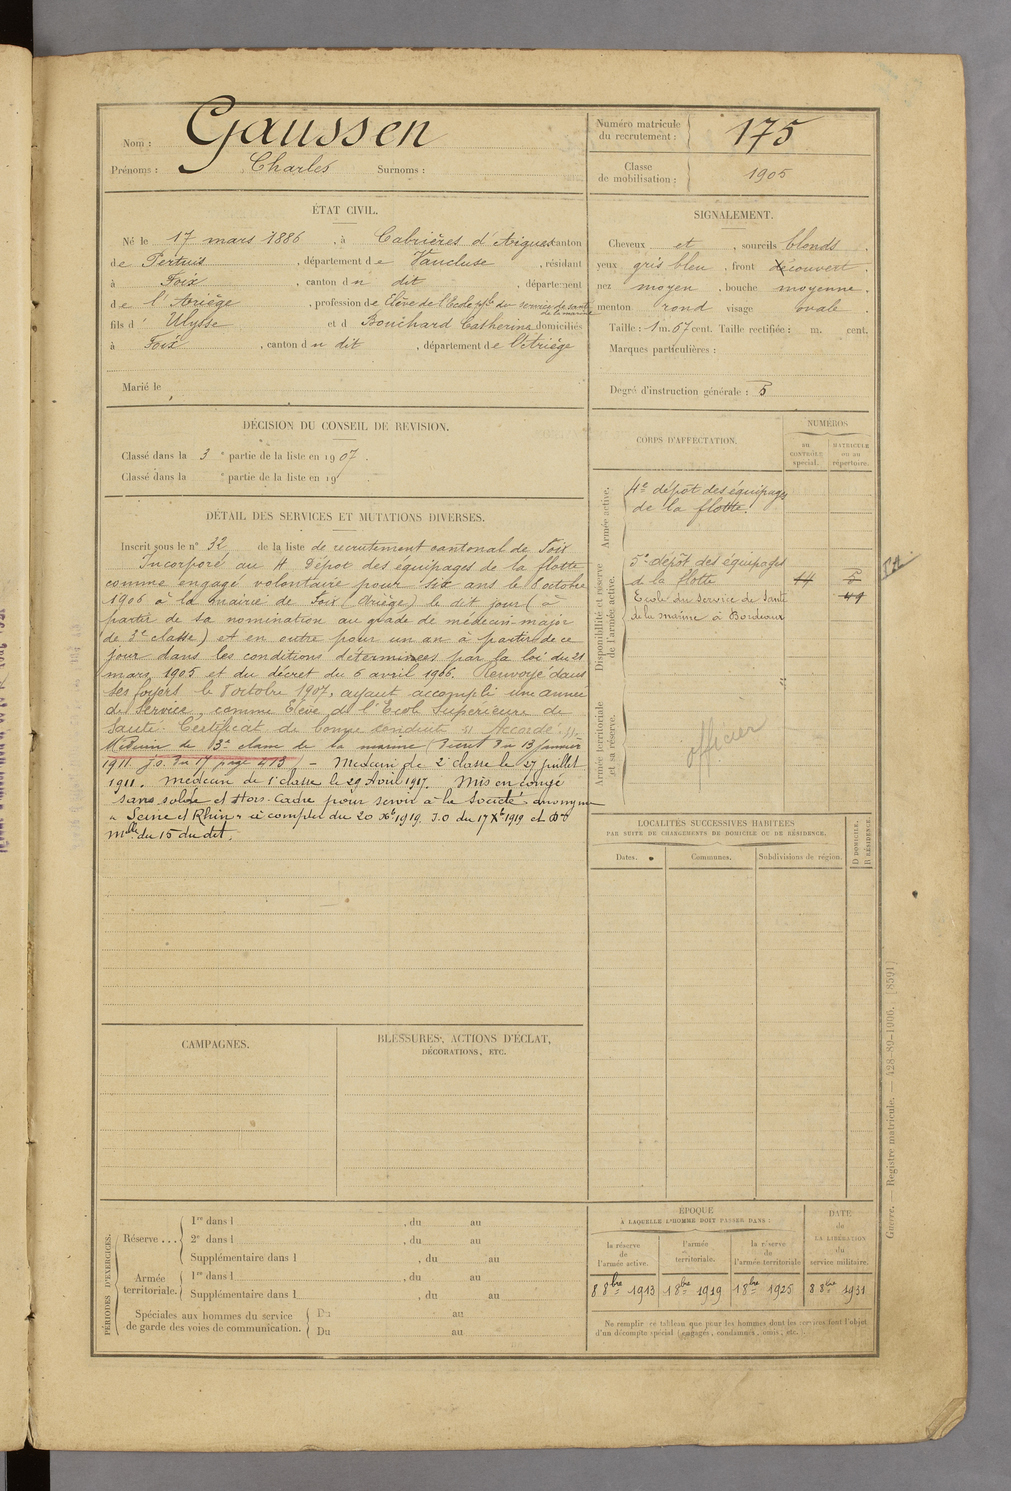 Nom : Gaussen
Prénoms : Charles Surnoms :
Numéro matricule du recrutement : 175
Classe de mobilisation : 1905
ÉTAT CIVIL.
Né le 17 mars 1886, à Cabrières d'Aigues canton
de Pertuis, département de Vaucluse, résidant
à Foix, canton du dit, département
de l'Ariège, profession de Élève de l'Ecole pple du service de santé
de la marine
fils d' Ulysse et d Bouchard Catherine domiciliés
à Foix, canton du dit, département de l'Ariège
Marié le
SIGNALEMENT.
Cheveux et , sourcils blonds .
yeux gris bleu , front découvert .
nez moyen , bouche moyenne .
menton rond visage ovale .
Taille : 1 m. 67 cent. Taille rectifiée : m. cent.
Marques particulières :
Degré d'instruction générale : 5
DÉCISION DU CONSEIL DE REVISION.
Classé dans la 3e partie de la liste en 1907.
Classé dans la e partie de la liste en 19
DÉTAIL DES SERVICES ET MUTATIONS DIVERSES.
Inscrit sous le n° 32 de la liste de recrutement cantonal de Foix
Incorporé au 4 Dépot des équipages de la flotte
comme engagé volontaire pour six ans le 8 octobre
1906 à la mairie de Foix (Ariège) le dit jour (à
partir de sa nomination au grade de médecin-major
de 3e classe) et en outre pour un an à partir de ce
jour dans les conditions déterminées par la loi du 21
mars 1905 et du décret du 6 avril 1906. Renvoyé dans
ses foyers le 8 octobre 1907, ayant accompli une année
de service, comme Elève de l'Ecole Supérieure de
Santé. Certificat de bonne conduite "Accordé".
Médecin de 3e classe de la marine (Décret du 13 janvier
1911. J.O. du 17 page 413) - Médecin de 2e classe le 27 juillet
1911. Médecin de 1e classe le 29 Avril 1917. Mis en congé
sans solde et Hors-Cadre pour servir à la Société anonyme
"Seine et Rhin" à compter du 20 Xbre 1919 J.O du 17 Xbre 1919 et
du 15 du dit.
CORPS D'AFFECTATION.
NUMÉROS
au CONTRÔLE spécial.
MATRICULE ou au répertoire.
Armée active.
4e dépôt des équipages
de la flotte.
Disponibilité et réserve de l'armée active.
5e dépôt des équipages
de la flotte
Ecole du Service de Santé
de la marine à Bordeaux
Armée territoriale et sa réserve.
officier
LOCALITÉS SUCCESSIVES HABITÉES
PAR SUITE DE CHANGEMENTS DE DOMICILE OU DE RÉSIDENCE.
Dates. Communes. Subdivisions de région.
D DOMICILE. R RÉSIDENCE.
CAMPAGNES.
BLESSURES, ACTIONS D'ÉCLAT,
DÉCORATIONS, ETC.
PÉRIODES D'EXERCICES.
Réserve . . .
1re dans l , du au
2e dans l , du au
Supplémentaire dans l , du au
Armée territoriale.
1re dans l , du au
Supplémentaire dans l , du au
Spéciales aux hommes du service
de garde des voies de communication.
Du au
Du au
ÉPOQUE
À LAQUELLE L'HOMME DOIT PASSER DANS :
la réserve de l'armée active.
l'armée territoriale.
la réserve de l'armée territoriale
DATE de LA LIBÉRATION du service militaire.
8 8bre 1913
1 8bre 1919
1 8bre 1925
8 8bre 1931
Ne remplir ce tableau que pour les hommes dont les services font l'objet
d'un décompte spécial (engagés, condamnés, omis, etc.)
Guerre. — Registre matricule. — 428-89-1906. [8591]